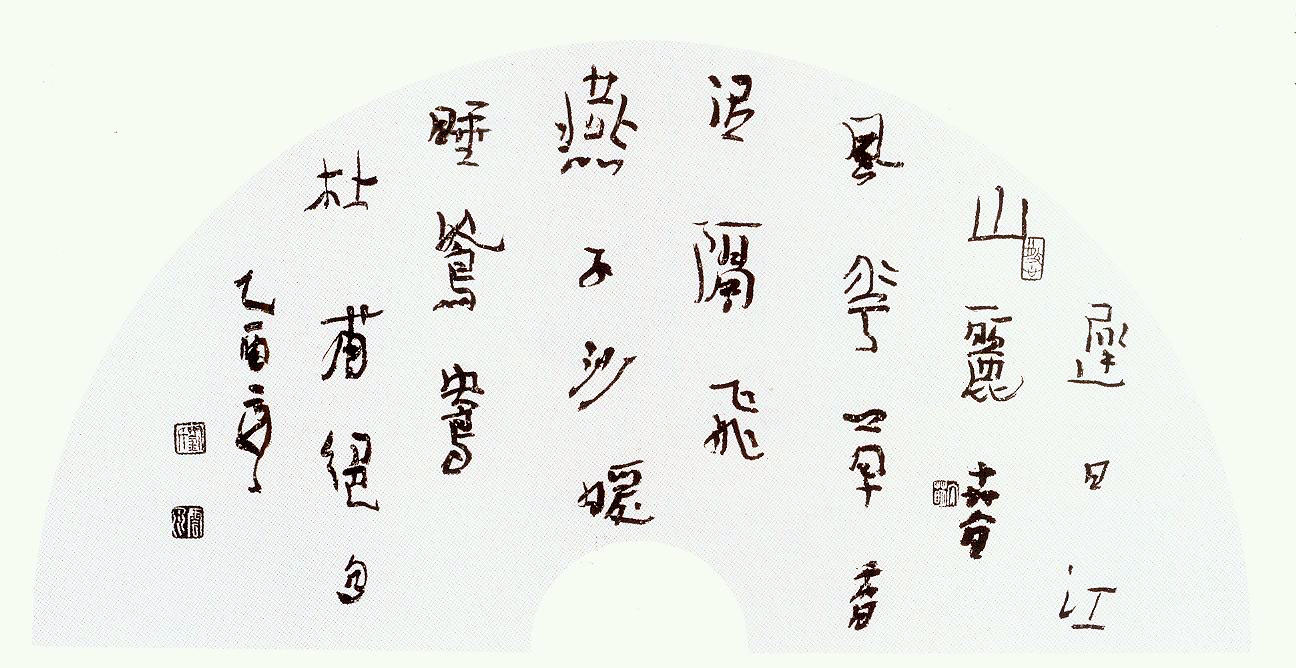 遲日江
山麗春
風華草香
泥融飛
燕子沙暖
睡鴛鴦
杜甫絕句
乙酉